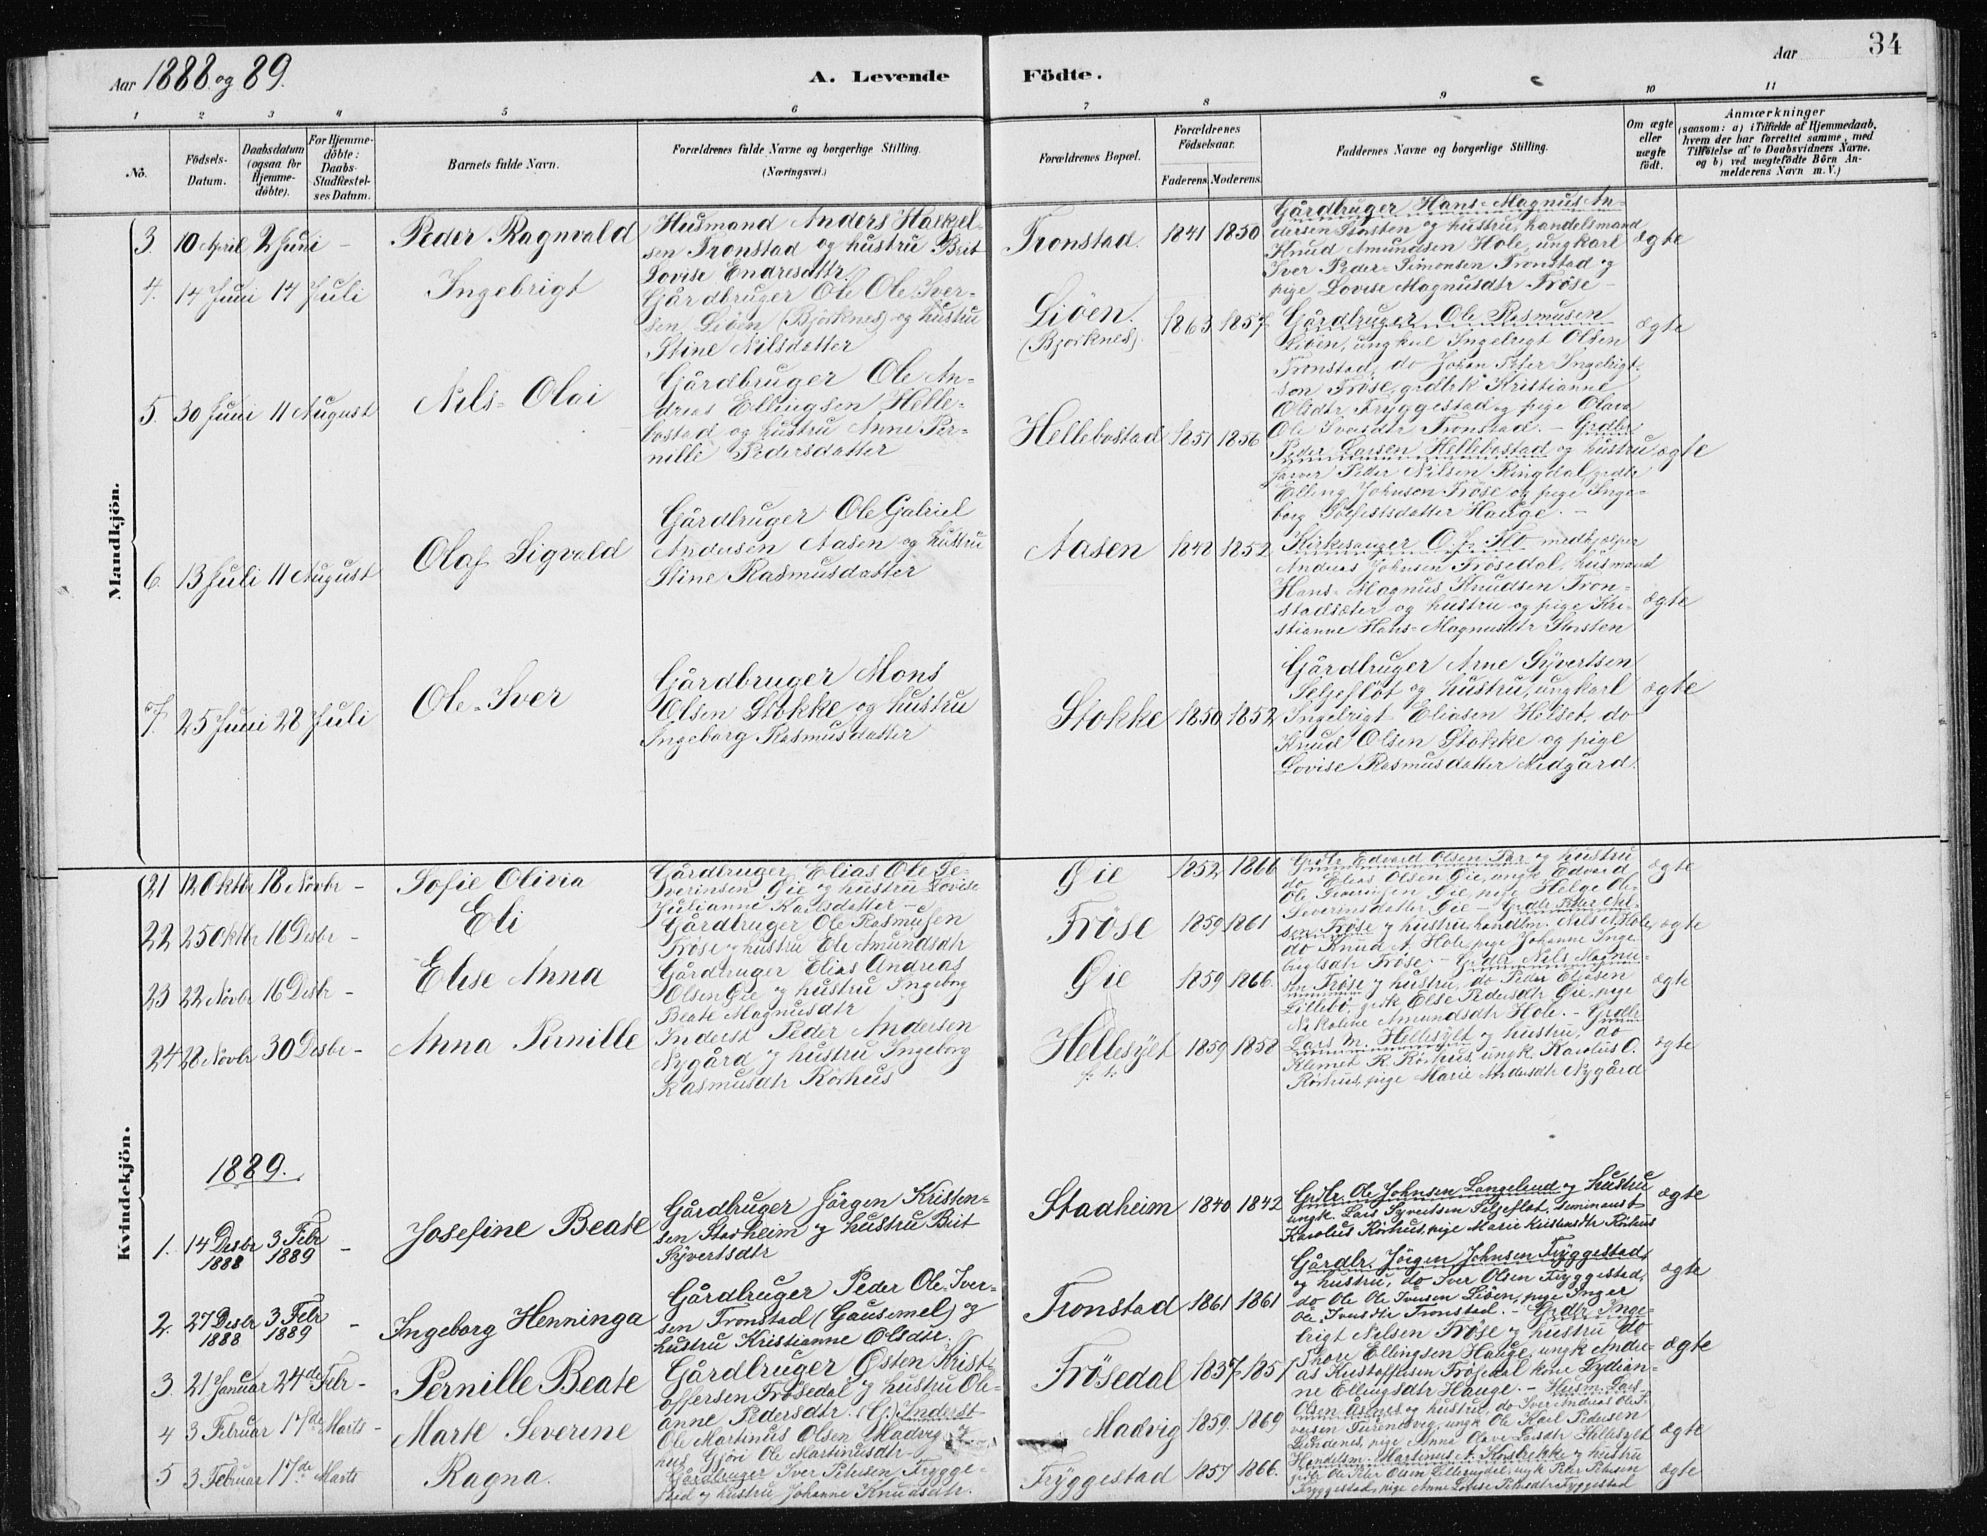 Aar 1888 og 89.
A. Levende
Födte.
Aar
34
1 2 3 4 5 6 7 8 9 10 11
No.
Födsels-Datum.
Daabsdatum (ogsaa for Hjemme-döbte).
For Hjemme-döbte: Daabs-Stadfæstel-ses Datum.
Barnets fulde Navn.
Forældrenes fulde Navne og borgerlige Stilling.
(Næringsvei.)
Forældrenes Bopæl.
Forældrenes Födselsaar.
Faderens. Moderens.
Faddernes Navne og borgerlige Stilling.
Om ægte eller uægte födt.
Anmærkninger
(saasom: a) i Tilfælde af Hjemmedaab,
hvem der har forrettet samme, med
Tilföielse af to Daabsvidners Navne.
og b) ved uægtefödte Börn An-
melderens Navn m. V.)
Mandkjön.
3. 10 April 2 Juni - Peder Ragnvald
Husmand Anders Hackel-
sen Tronstad og hustru Brit
Lovise Endresdttr
Tronstad. 1841 1850
Gårdbruger Hans-Magnus An-
dersen Tronsten og hustru, handelsmand
Knud Amundsen Hole, ungkarl
Iver Peder-Simonsen Tronstad og
pige Lovise Magnusdtr Frøse -
ægte
4. 14 Juni 14 Juli Ingebrigt
Gårdbruger Ole Ole Iver-
sen Liöen (Bjørknes) og hustru
Stine Nilsdatter
Liöen. (Bjorknes). 1863 1857
Gårdbruger Ole Rasmusen
Liöen, ungkarl Ingebrigt Olsen
Tronstad, do Johan Peter Ingebrigt-
sen Frøse, grdbrk Kristianne
Olsdtr Tryggestad og pige Olava
Ole Iversdtr Tronstad. -
ægte
5. 30 Juni 11 August Nils-Olai
Gårdbruger Ole An-
dreas Ellingsen Helle-
bostad og hustru Anne Per-
nille Pedersdatter
Hellebostad 1851 1856
Grdbr
Peder Larsen Hellebostad og hustru
farver Peder Nilsen Ringdal, grdbr
Elling Johnsen Frøse og pige Inge-
borg Sjursdatter Hauge. -
ægte
6. 13 Juli 11 August Olaf Sigvald
Gårdbruger Ole Gabriel
Andersen Aasen og hustru
Stine Rasmusdatter
Aasen 1842 1852
Kirkesanger O. L. Hø medhjelper
Andreas Johnsen Frøsedal, husmand
Hans-Magnus Knudsen Tron-
stadsæter og hustru og pige Kri-
stianne Hans-Magnusdtr Storsten
ægte
7. 25 Juni 28 Juli Ole-Iver
Gårdbruger Mons
Olsen Stokke og hustru
Ingeborg Rasmusdatter
Stokke 1850 1852
Gårdbruger Arne Syvertsen
Seljeflöt og hustru, ungkarl
Ingebrigt Eliasen Holset, do
Knud Olsen Stokke og pige
Lovise Rasmusdatter Nedgård.
ægte
Kvindekjön.
21 12 Oktbr 18 Novbr - Sofie Olivia
Gårdbruger Elias Ole Se-
verinsen Øie og hustru Lovise
Julianne Karlsdatter -
Øie 1852 1866
Grdbr Edvard Olsen og hustru
do Elias Olsen Øie, ungk Edvard
Ole Severinsen Øie, pige Helge Ole-
Severinsdatter Øie -
ægte
22 25 Oktbr 16 Desbr - Eli
Gårdbruger Ole Rasmusen
Frøse og hustru Eli Amundsdtr
Frøse 1859 1861
Grdbr Peter Nil-
sen Frøse og hustru handlm. Nils A Hole
do Knud A. Hole, pige Johanne Inge-
brigtsdtr Frøse. -
ægte
23 22 Novbr 16 Desbr - Else Anna
Gårdbruger Elias Andreas
Olsen Øie og hustru Ingeborg
Beate Magnusdtr
Øie 1859 1866.
Grdbr Nils Magnu-
sen Frøse og hustru, do Peder Eliasen
Lillebö, grdk Else Pedersdtr Øie, pige
Nikoline Amundsdtr Hole. -
ægte
24 28 Novbr 30 Desbr - Anna Pernille
Inderst Peder Andersen
Nygård og hustru Ingeborg
Rasmusdtr Rörhus
Hellesylt p. t. 1859 1858
Grdbr
Lars M. Hellesylt og hustru, do
Klemet R. Rörhus, ungk. Karolus O.
Rörhus, pige Marie Andersdtr Nygård
ægte
1889.
1. 14 Desbr 1888 3 Febr 1889 - Josefine Beate
Gårdbruger Jörgen Kristen-
sen Stadheim og hustru Brit
Syvertsdtr
Stadheim 1840 1842
Grdbr. Ole Johnsen Langelund og hustru
ungk. Lars Syvertsen Seljeflöt, Seminarist
Karolus Rörhus, pige Marie Kristensdtr Rörhus
ægte
2. 27 Desbr 1888 3 Febr 1889 - Ingeborg Henninga
Gårdbruger Peder Ole-Iver-
sen Tronstad (Gausemel) og
hustru Kristianne Olsdtr.
Tronstad 1861 1861
Gårdbr. Jörgen Johnsen Tryggestad,
og hustru, do Iver Olsen Tryggestad,
do Ole Ole Iversen Liöen, pige Inger
Ole-Iversdtr Tronstad. -
ægte
3. 21 Januar 24de Febr - Pernille Beate
Gårdbruger Østen Krist-
offersen Frøsedal og hustru Ole-
anne Pedersdtr.
Frøsedal 1837 1851
Grdbr. Inge-
brigt Nilsen Frøse og hustru do
Thore Ellingsen Hauge, ungk Andre-
as Kristoffersen Frøsedal kone Lydian-
ne Ellingsdtr Hauge. -
ægte
4 3 Februar 17de Marts - Marte Severine
Inderst
Ole Martinus Olsen Madvig og
hus Gjöri Ole Martinusdtr
Madvig 1859 1869
Husm. Lars
Olsen Osnes og hustru, do Iver Andreas Ole I-
versen Furenesvig, ungk Ole Karl Pedersen
Lundenes, pige Anna Olave Larsdtr Hellesylt
ægte
5 3 Februar 17de Marts Ragna.
Gårdbruger Iver Petersen Trygge-
stad og hustru Johanne Knudsdtr.
Tryggestad 1857 1866.
Handelsm. Martinus A. Korsbrekke og hustru
grdbr Ole Peter Olsen Lillerødal, ungk Peter Petersen
Tryggestad, pige Anne Lovise Petersdtr Tryggestad
ægte